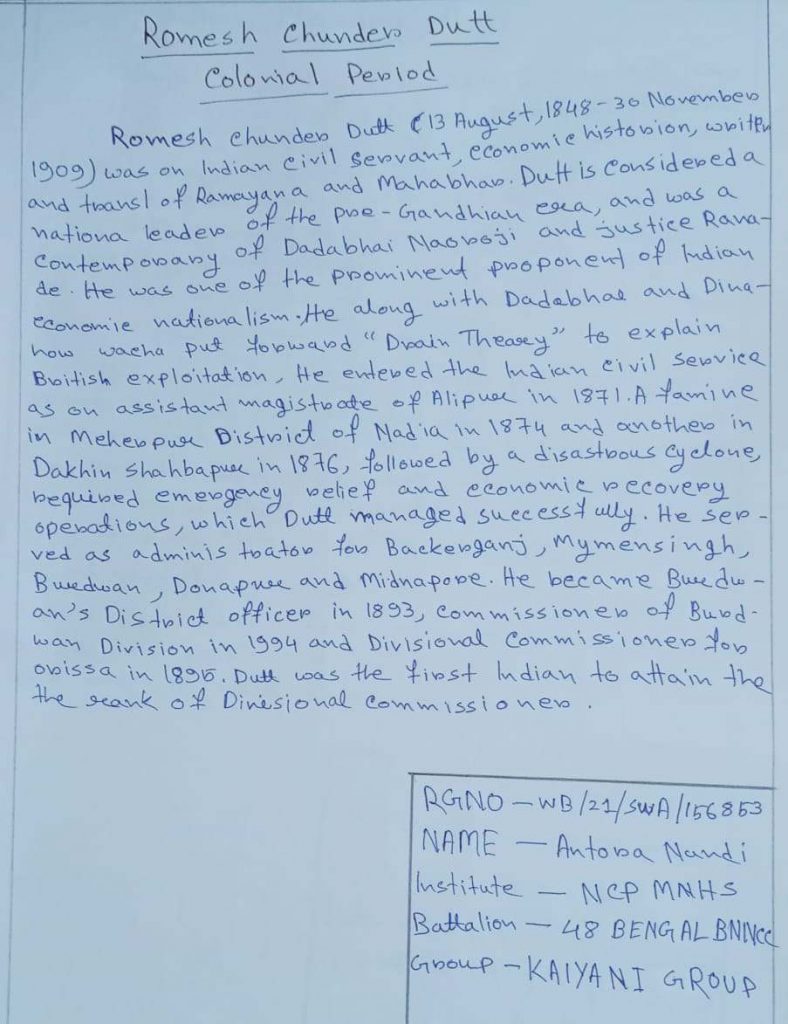 Romesh Chunder Dutt
Colonial Period
Romesh Chunder Dutt (13 August, 1848 - 30 November
1909) was on Indian Civil Servant, economic historion, writer
and transl of Ramayana and Mahabhar. Dutt is considered a
nationa leader of the pre - Gandhian era, and was a
contemporary of Dadabhai Naoroji and justice Rana-
de. He was one of the prominent proponent of Indian
economie nationalism. He along with Dadabhae and Dina-
how wacha put forward "Drain Theary" to explain
British exploitation, He entered the Indian civil service
as on assistant magistrate of Alipur in 1871. A famine
in Meherpur District of Nadia in 1874 and another in
Dakhin shahbapur in 1876, followed by a disastrous cyclone,
required emergency relief and economic recovery
operations, which Dutt managed successfully. He ser-
ved as administrator for Backerganj, Mymensingh,
Burdwan, Donapur and Midnapore. He became Burdw-
an's District officer in 1893, commissioner of Burd-
wan Division in 1994 and Divisional Commissioner for
orissa in 1895. Dutt was the first Indian to attain the
the rank of Diniesional commissioner.
RGNO - WB/21/SWA/156853
NAME - Antora Nandi
Institute - NCP MNHS
Battalion - 48 BENGAL BNNCC
Group - KAIYANI GROUP